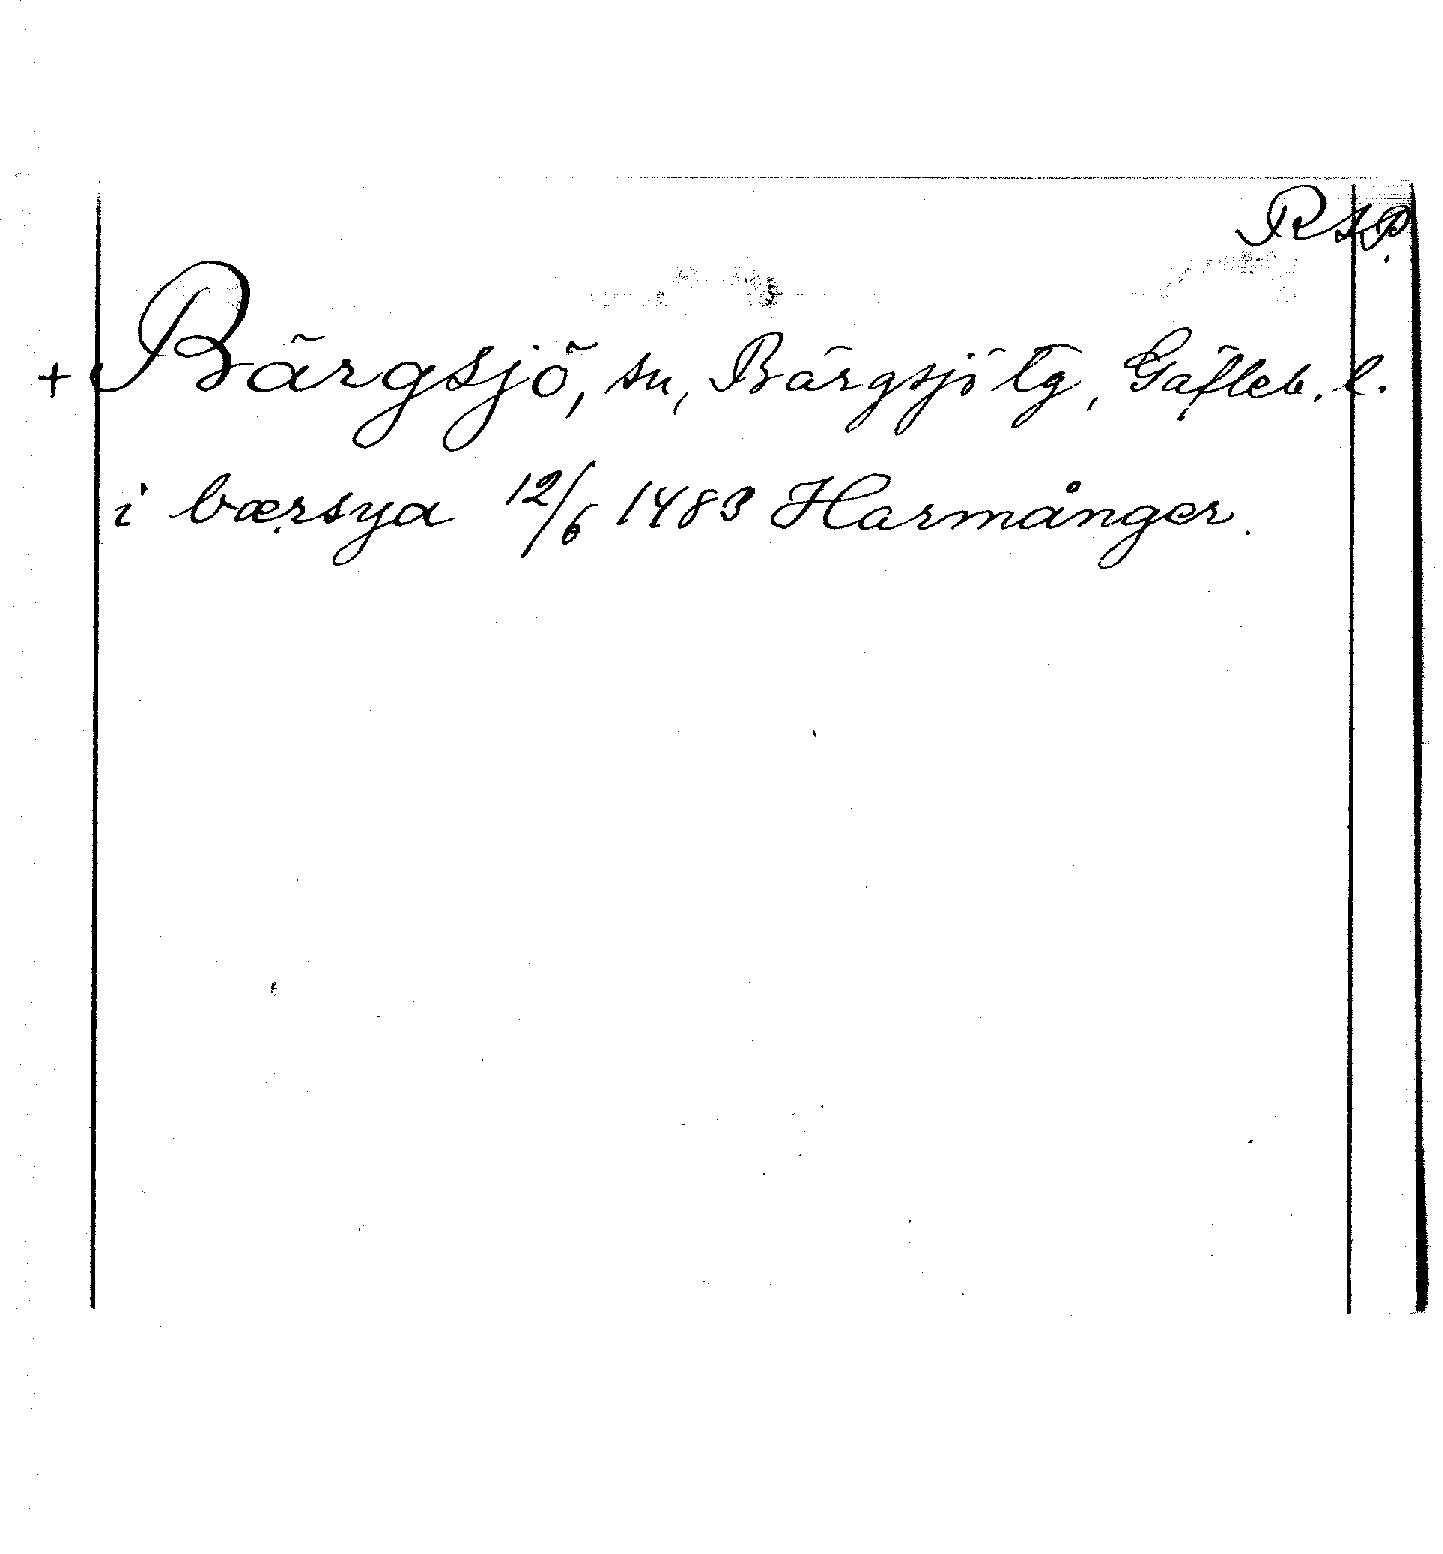 RAP.
+ Bärgsjö, sn, Bärgsjö tg, Gäfleb. l.
i bærsya 12/6 1483 Harmånger.